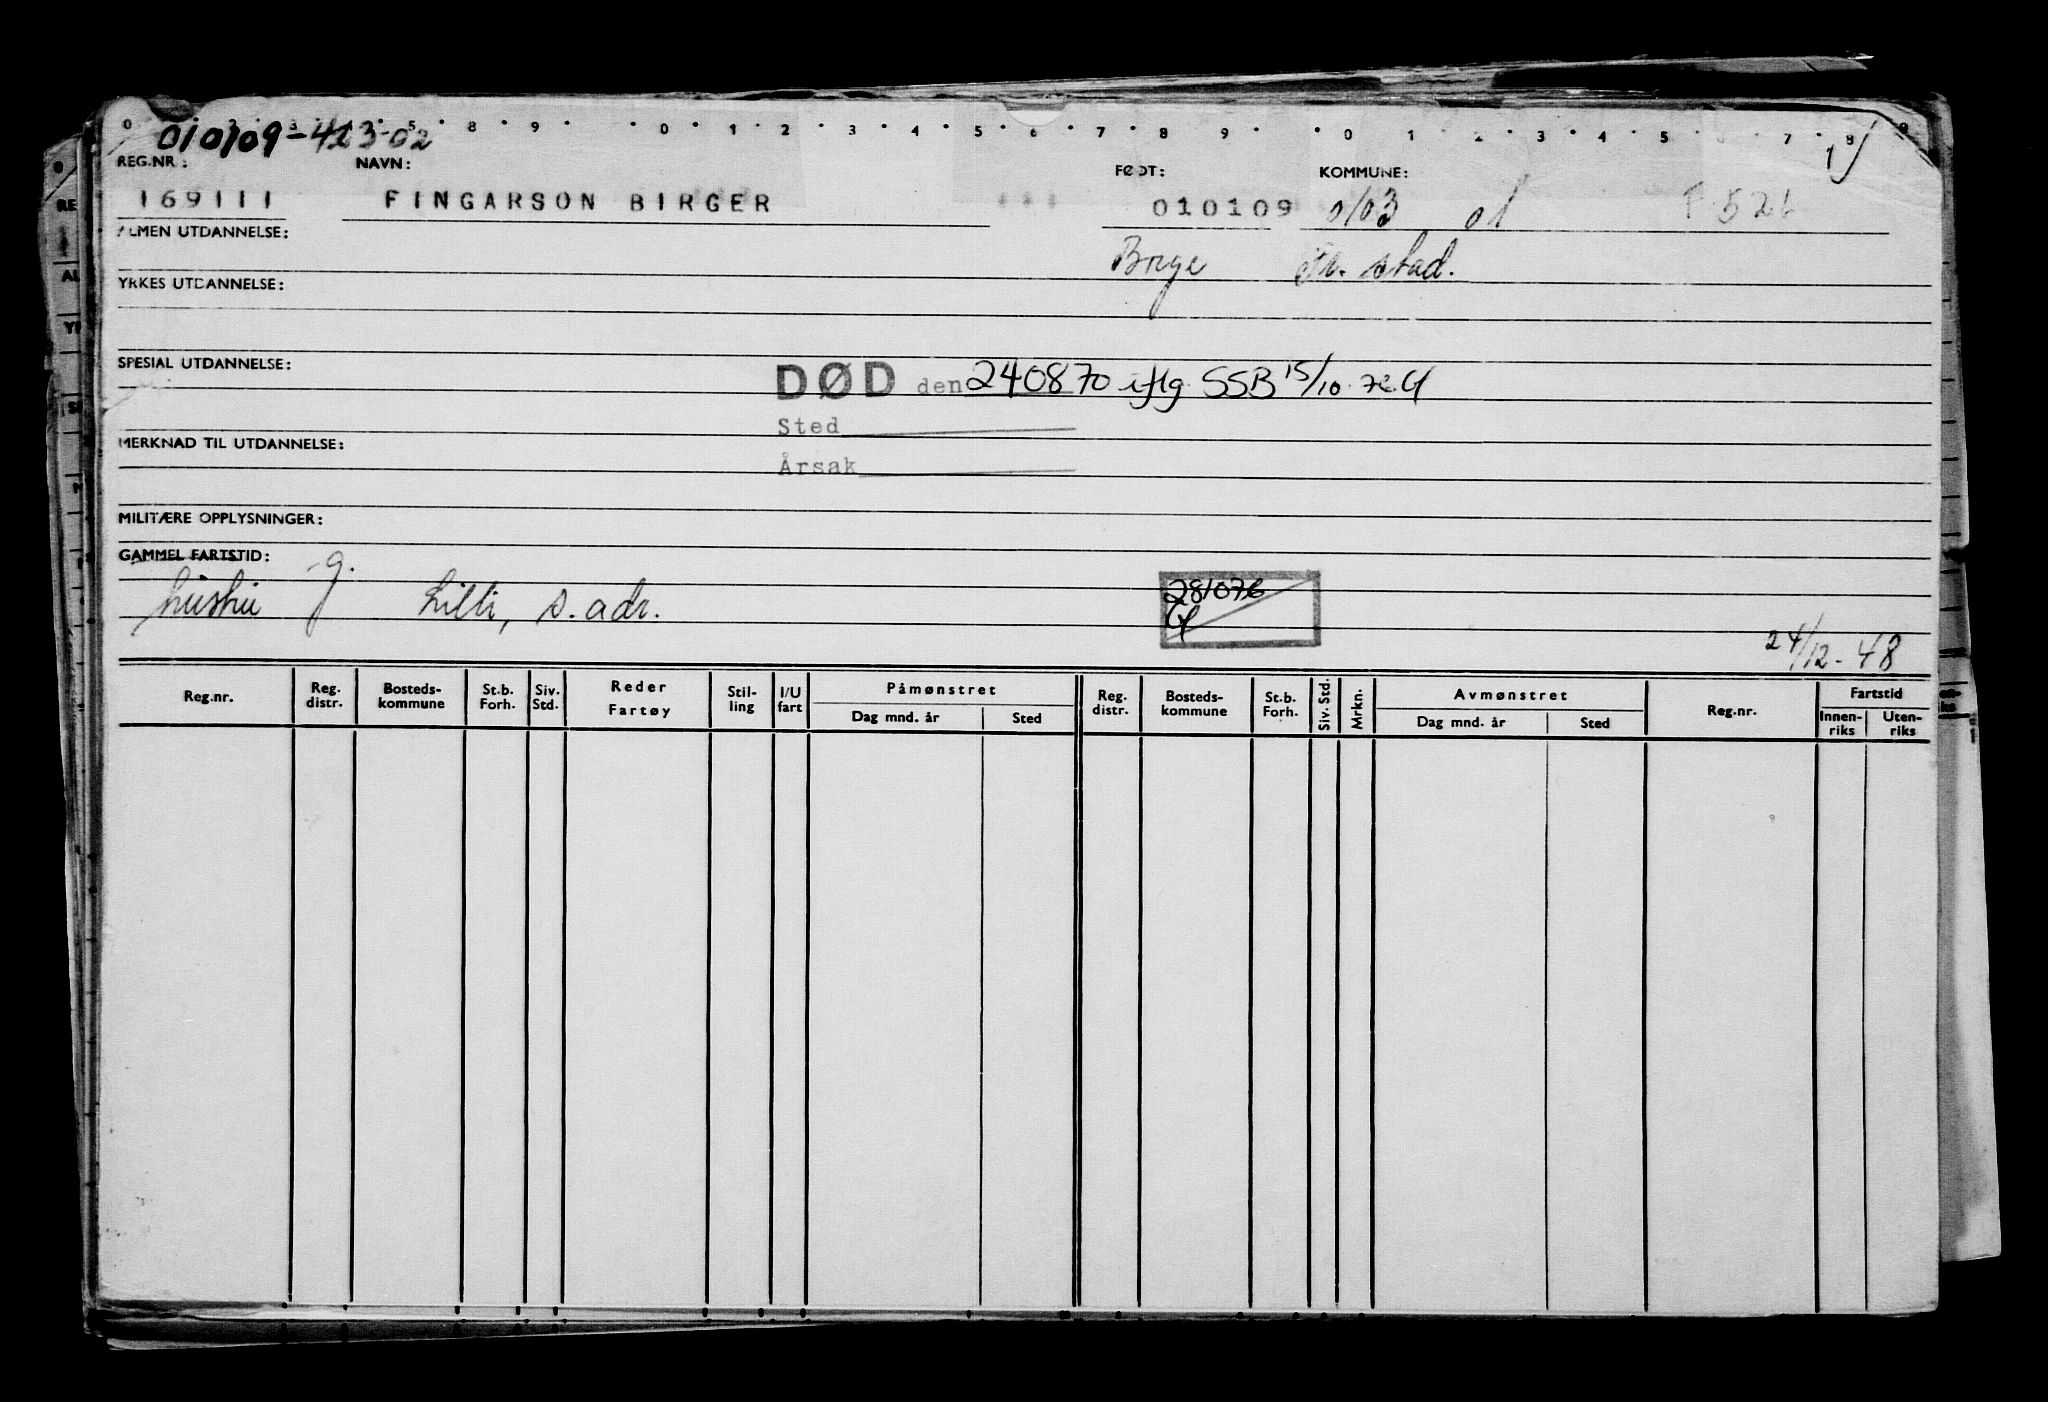 010109-413-02
REG.NR.: NAVN: FØDT: KOMMUNE:
169111 FINGARSON BIRGER 010109 0103 01 F 526
ALMEN UTDANNELSE:
Borge Fr. stad.
YRKES UTDANNELSE:
SPESIAL UTDANNELSE:
DØD den 240870 iflg SSB 15/10.72
Sted
Årsak
MERKNAD TIL UTDANNELSE:
MILITÆRE OPPLYSNINGER:
GAMMEL FARTSTID:
g.
hustru Lilli, s. adr.
281076
24/12-48
Reg.nr. Reg. distr. Bosteds-kommune St.b. Forh. Siv. Std. Reder Fartøy Stil-ling I/U fart Påmønstret Dag mnd. år Sted Reg. distr. Bosteds-kommune St.b. Forh. Siv. Std. Mrkn. Avmønstret Dag mnd. år Sted Reg.nr. Fartstid Innen-riks Uten-riks